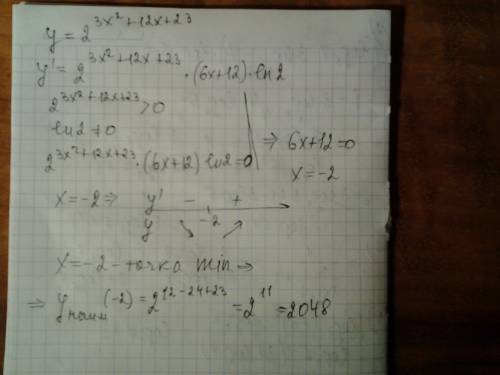 y = 2^{3x²+12x+23}
y' = 2^{3x²+12x+23} · (6x+12) · ln 2
2^{3x²+12x+23} > 0
ln 2 ≠ 0
2^{3x²+12x+23} · (6x+12) ln 2 = 0 | ⇒ 6x+12=0
x=-2
x=-2 ⇒ y' - +
y -2 ↘ ↗
x=-2 - точка min ⇒
⇒ y наим (-2) = 2^{12-24+23} = 2^{11} = 2048